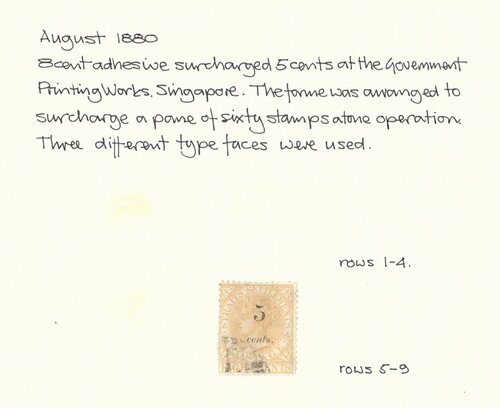 August 1880
8 cent adhesive surcharged 5 cents at the Government
Printing Works, Singapore. The forme was arranged to
surcharge a pane of sixty stamps at one operation.
Three different type faces were used.
rows 1-4.
STRAITS SETTLEMENTS
5
cents.
rows 5-9